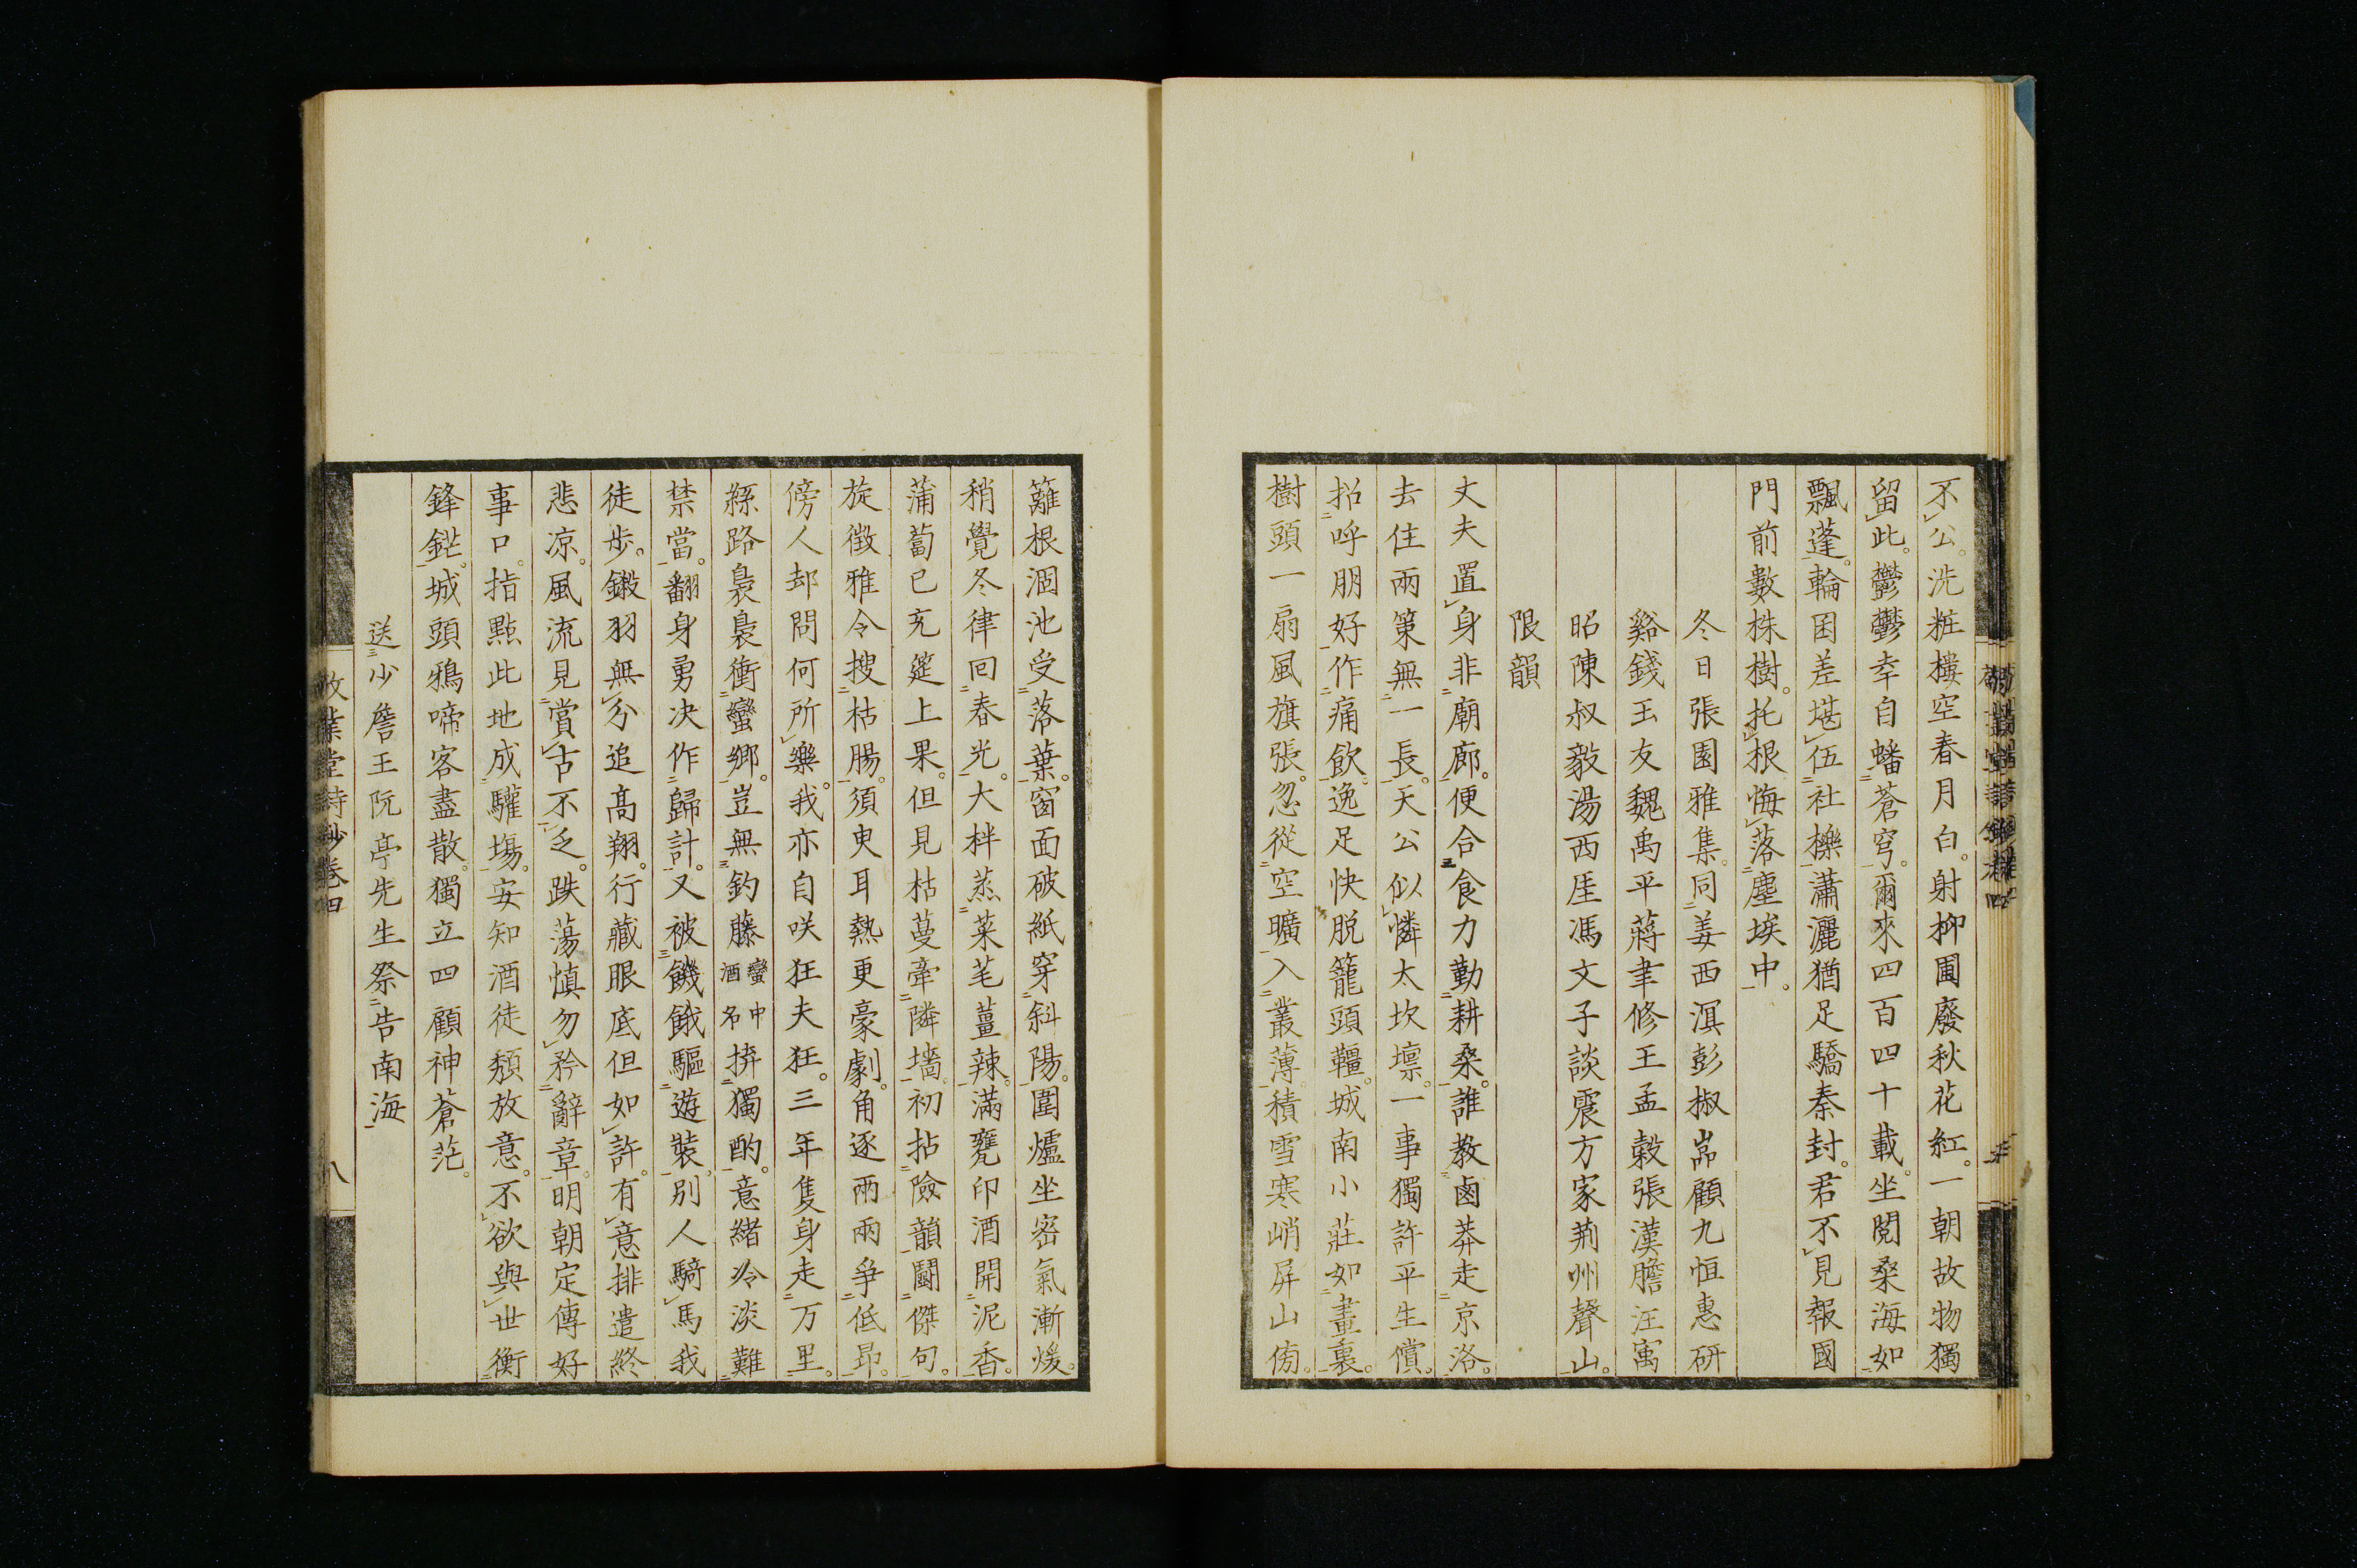 不公洗粧樓空春月白射柳圃廢秋花紅一朝故物獨
留此鬱鬱幸自蟠蒼穹爾來四百四十載坐閱桑海如
飄蓬輪囷差堪伍社櫟瀟灑猶足驕秦封君不見報國
門前數株樹托根悔落塵埃中
冬日張園雅集同姜西溟彭椒嵒顧九恒惠研
谿錢玉友魏禹平蔣聿修王孟穀張漢瞻汪寓
昭陳叔毅湯西厓馮文子談震方家荊州聲山
限韻
丈夫置身非廟廊便合食力勤耕桑誰教鹵莽走京洛
去住兩策無一長天公似憐太坎壈一事獨許平生償
招呼朋好作痛飲逸足快脱籠頭韁城南小莊如畫裏
樹頭一扇風旗張忽從空曠入叢薄積雪寒峭屏山傍
籬根涸池受落葉窗面破紙穿斜陽圍爐坐密氣漸煖
稍覺冬律回春光大柈蒸菜芼薑辣滿甕印酒開泥香
蒲萄已充筵上果但見枯蔓牽隣墻初拈險韻鬬傑句
旋徵雅令搜枯腸須臾耳熱更豪劇角逐兩兩爭低昂
傍人却問何所樂我亦自咲狂夫狂三年隻身走万里
繇路裊裊衝蠻鄉豈無釣藤蠻中酒名拚獨酌意緒冷淡難
禁當翻身勇决作歸計又被饑餓驅遊裝別人騎馬我
徒步鎩羽無分追高翔行藏眼底但如許有意排遣終
悲凉風流見賞古不乏跌蕩慎勿矜辭章明朝定傳好
事口指點此地成驩塲安知酒徒頹放意不欲與世衡
鋒鋩城頭鴉啼客盡散獨立四顧神蒼茫
送少詹王阮亭先生祭告南海
敬業堂詩鈔卷四
八